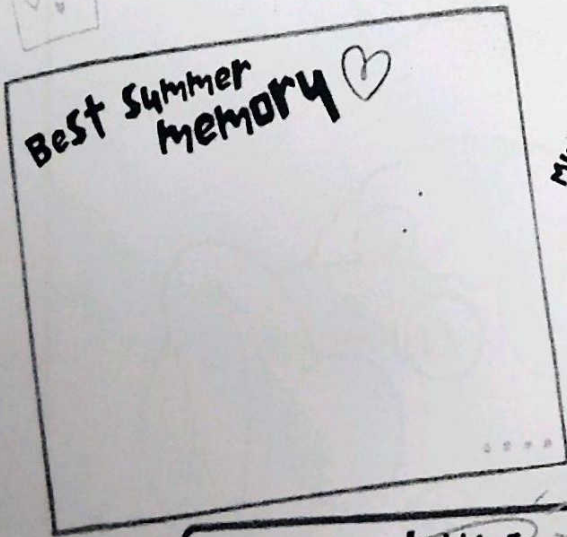 Best Summer
memory